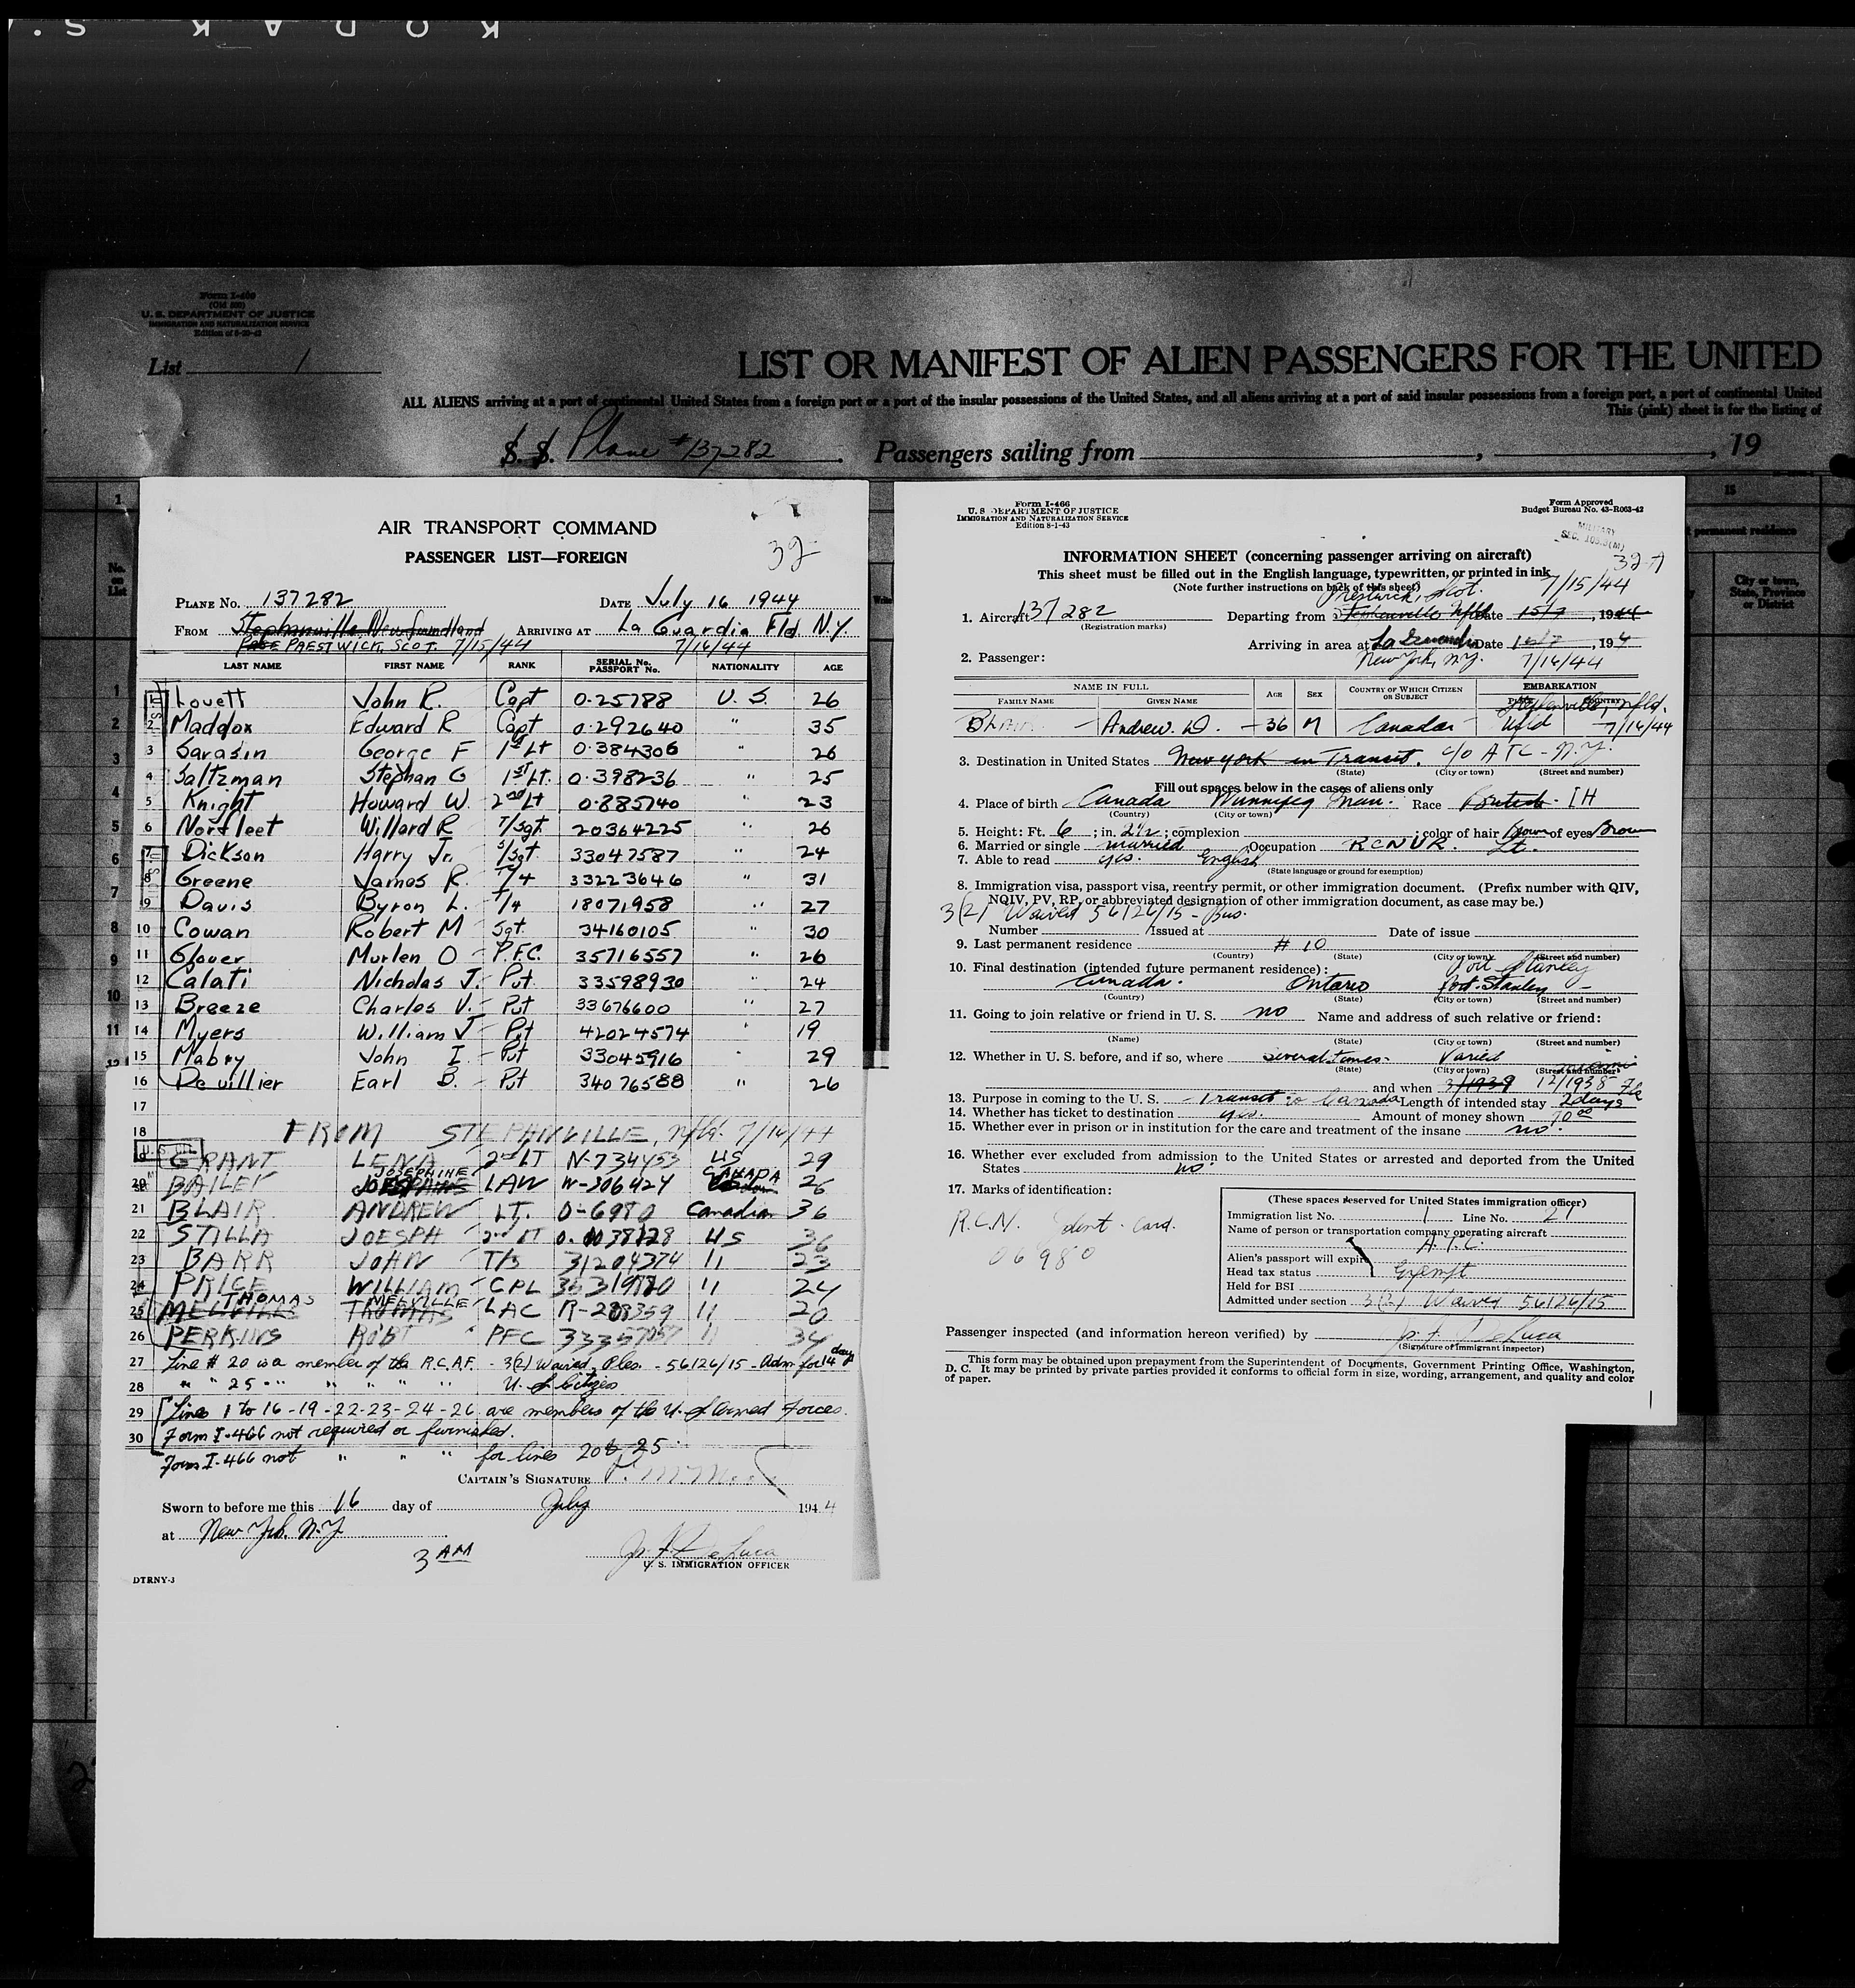 KODAK S.
Form I-466
(Old 500)
U. S. DEPARTMENT OF JUSTICE
IMMIGRATION AND NATURALIZATION SERVICE
List 1
LIST OR MANIFEST OF ALIEN PASSENGERS FOR THE UNITED
ALL ALIENS arriving at a port of continental United States from a foreign port or a port of the insular possessions of the United States, and all aliens arriving at a port of said insular possessions from a foreign port, a part of continental United
This (pink) sheet is for the listing of
S. S. Plane #137282 Passengers sailing from , , 19
AIR TRANSPORT COMMAND
32
PASSENGER LIST—FOREIGN
PLANE No. 137282 DATE July 16 1944
FROM Stephenville Newfoundland ARRIVING AT La Guardia Fld. N.Y.
PRESTWICK, SCOT. 7/15/44 7/16/44
LAST NAME FIRST NAME RANK SERIAL No. PASSPORT No. NATIONALITY AGE
1 Lovett John R. Capt 0-25788 U. S. 26
2 Maddox Edward R Capt 0-292640 " 35
3 Sarasin George F 1st Lt 0-384306 " 26
4 Saltzman Stephan G 1st Lt. 0-398236 " 25
5 Knight Howard W. 2nd Lt 0-885740 " 23
6 Norfleet Willard R T/Sgt. 20364225 " 26
7 Dickson Harry Jr. S/Sgt. 33047587 " 24
8 Greene James R. T/4 33223646 " 31
9 Davis Byron L. T/4 18071958 " 27
10 Cowan Robert M Sgt. 34160105 " 30
11 Glover Murlen O P.F.C. 35716557 " 26
12 Calati Nicholas J. Pvt. 33598930 " 24
13 Breeze Charles V. Pvt 33676600 " 27
14 Myers William J Pvt 42024574 " 19
15 Mabry John I. Pvt 33045916 " 29
16 Devillier Earl B. Pvt 34076588 " 26
17
18 FROM STEPHINVILLE, Nfld. 7/16/44
19 GRANT LENA 2nd LT N-734453 US 29
20 BAILEY JOSEPHINE LAW W-306424 CANADA 26
21 BLAIR ANDREW LT. O-6980 Canadian 36
22 STILLA JOESPH 2nd LT US 36
23 BARR JOHN T/5 31204374 11 23
24 PRICE WILLIAM CPL 11 24
25 MELVILLE THOMAS THOMAS MELVILLE LAC 11 20
26 PERKINS ROBT PFC 11 34
27 Line # 20 is a member of the R.C.A.F. - 3(2) Waived, Ples. - 56126/15 - Adm for 14 days
28 " " 25 " " " " " " U. S. Citizen
29 Lines 1 to 16 - 19 - 22 - 23 - 24 - 26 are members of the U. S. Armed Forces.
30 Form I-466 not required or furnished.
Form I-466 not " " " for lines 20 & 25.
CAPTAIN'S SIGNATURE
Sworn to before me this 16 day of July 1944
at New York. N.Y.
3 AM
U. S. IMMIGRATION OFFICER
DTRNY-3
Form I-466
U. S. DEPARTMENT OF JUSTICE
IMMIGRATION AND NATURALIZATION SERVICE
Edition 8-1-43
Form Approved
Budget Bureau No. 43-R063-42
MILITARY
32-A
INFORMATION SHEET (concerning passenger arriving on aircraft)
This sheet must be filled out in the English language, typewritten, or printed in ink
(Note further instructions on back of this sheet)
Prestwick, Scot. 7/15/44
1. Aircraft 137282 Departing from Stephenville Nfld Date 15/7, 1944
(Registration marks)
Arriving in area at La Guardia Date 16/7, 194
2. Passenger: New York, N.Y. 7/16/44
NAME IN FULL AGE SEX COUNTRY OF WHICH CITIZEN OR SUBJECT EMBARKATION
FAMILY NAME GIVEN NAME PLACE COUNTRY
Stephenville, Nfld.
BLAIR - Andrew. D. - 36 M Canadar Nfld 7/16/44
3. Destination in United States New York in Transit. c/o ATC - N.Y.
(State) (City or town) (Street and number)
Fill out spaces below in the cases of aliens only
4. Place of birth Canada Winnipeg Man. Race British - IH
(Country) (City or town)
5. Height: Ft. 6 ; in. 2 1/2 ; complexion ; color of hair Brown of eyes Brown
6. Married or single married Occupation RCNVR. Lt.
7. Able to read yes. English
(State language or ground for exemption)
8. Immigration visa, passport visa, reentry permit, or other immigration document. (Prefix number with QIV,
NQIV, PV, RP, or abbreviated designation of other immigration document, as case may be.)
3(2) Waived 56126/15 - Bus.
Number Issued at Date of issue
9. Last permanent residence # 10
(Country) (State) (City or town) (Street and number)
10. Final destination (intended future permanent residence): Port Stanley
Canada. Ontario Port Stanley -
(Country) (State) (City or town) (Street and number)
11. Going to join relative or friend in U. S. no Name and address of such relative or friend:
(Name) (State) (City or town) (Street and number)
12. Whether in U. S. before, and if so, where several times. Varied Miami
(State) (City or town) (Street and number)
and when 3/1939 12/1938 Fla
13. Purpose in coming to the U. S. Transit to Canada Length of intended stay 2 days
14. Whether has ticket to destination yes. Amount of money shown 70.00
15. Whether ever in prison or in institution for the care and treatment of the insane no.
16. Whether ever excluded from admission to the United States or arrested and deported from the United
States no.
17. Marks of identification:
R.C.N. Ident. Card.
06980
(These spaces reserved for United States immigration officer)
Immigration list No. 1 Line No. 21
Name of person or transportation company operating aircraft
A.T.C.
Alien's passport will expire
Head tax status Exempt
Held for BSI
Admitted under section 3(2) Waived 56126/15
Passenger inspected (and information hereon verified) by
(Signature of immigrant inspector)
This form may be obtained upon prepayment from the Superintendent of Documents, Government Printing Office, Washington,
D. C. It may be printed by private parties provided it conforms to official form in size, wording, arrangement, and quality and color
of paper.
15
permanent residence
No. on List
City or town, State, Province or District